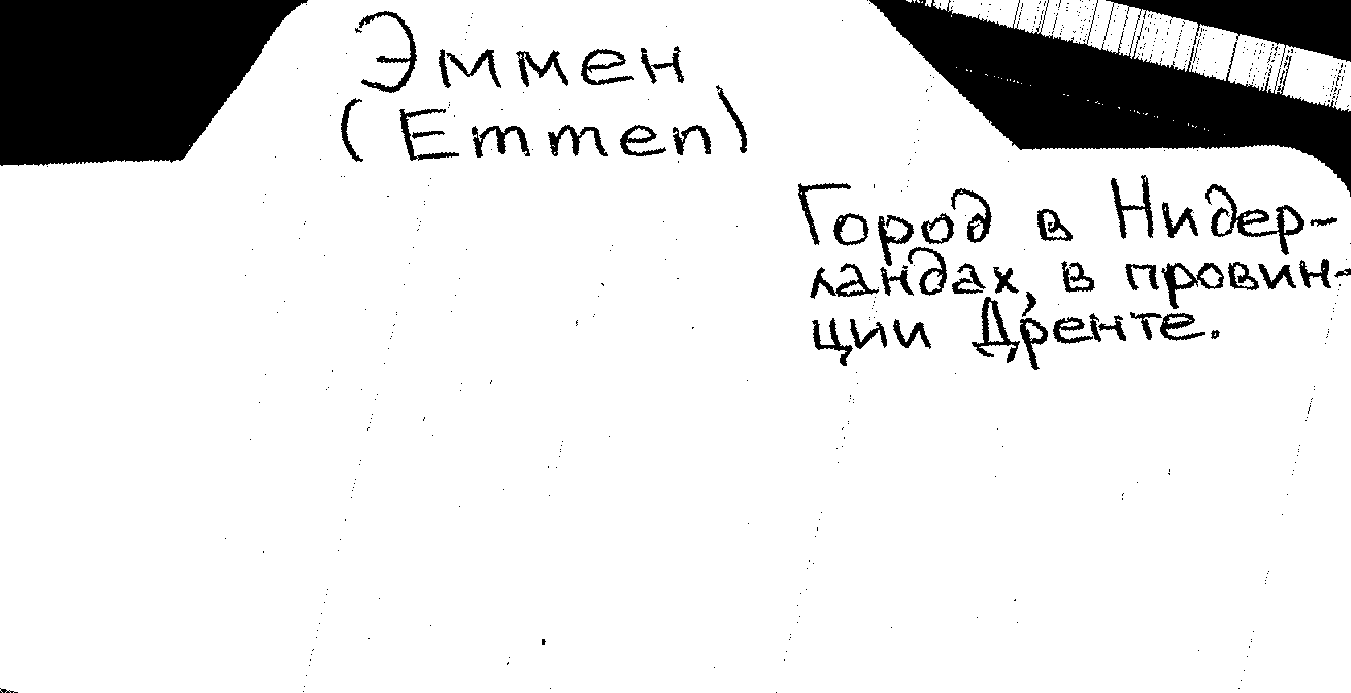 Эммен
(Emmen)
Город в Нидер-
ландах, в провин-
ции Дренте.